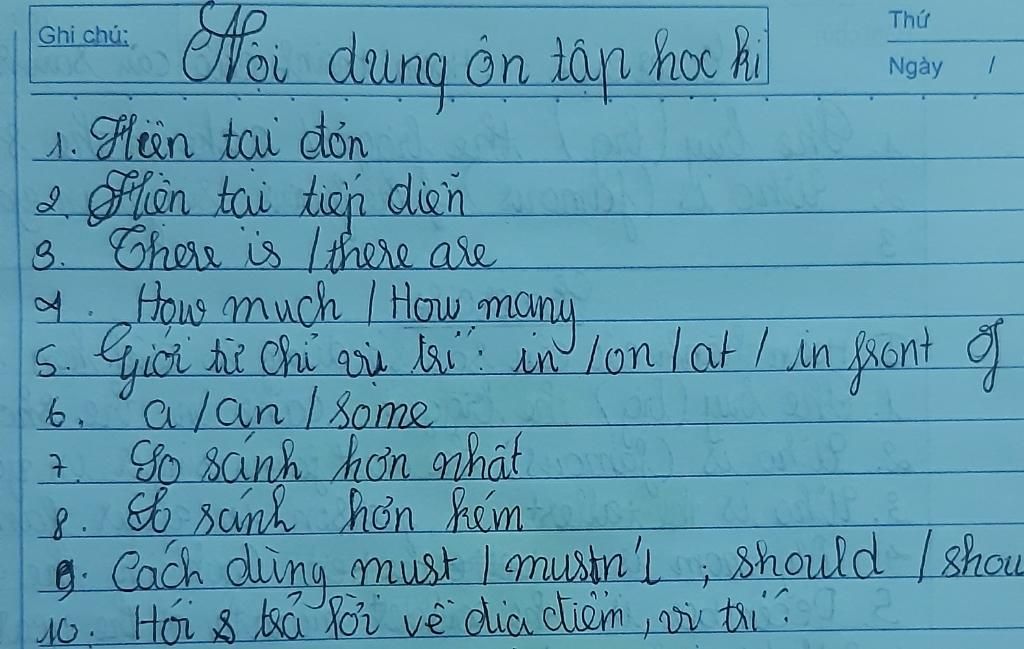 Ghi chú:
Nội dung ôn tập học kì
Thứ
Ngày /
1. Hiện tại đơn
2. Hiện tại tiếp diễn
3. There is / there are
4. How much / How many
5. Giới từ chỉ vị trí: in / on / at / in front of
6. a / an / some
7. So sánh hơn nhất
8. So sánh hơn kém
9. Cách dùng must / mustn't ; should / shou
10. Hỏi & trả lời về địa điểm, vị trí.